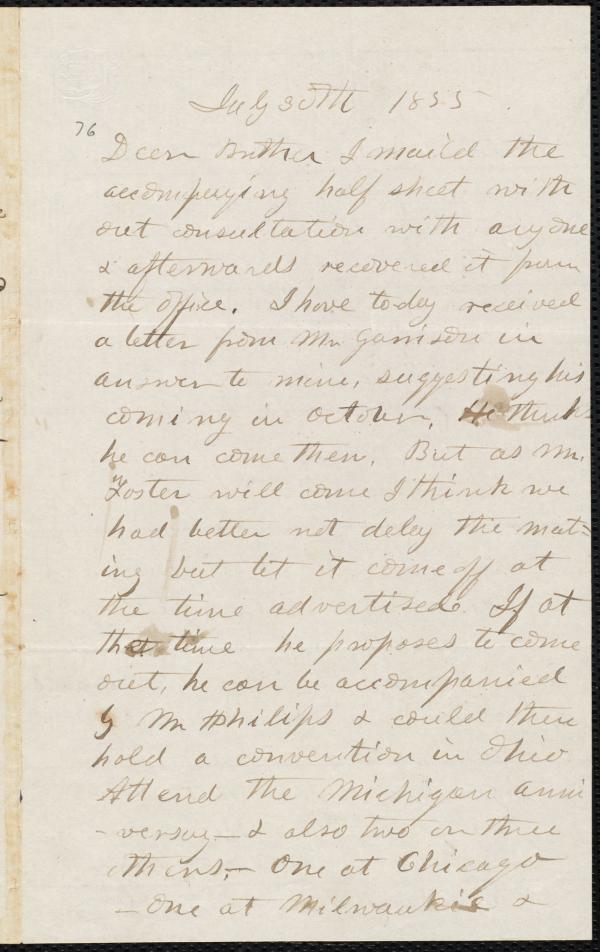 July 30th 1855.
76
Dear Brother I mailed the
accompanying half sheet with
out consultation with anyone
& afterwards recovered it from
the office. I have today received
a letter from Mr Garrison in
answer to mine, suggesting his
coming in october, He thinks
he can come then. But as Mr.
Foster will come I think we
had better not delay the meet=
ing but let it come off at
the time advertised. If at
that time he proposes to come
out, he can be accompanied
by Mr Philips & could then
hold a convention in Ohio
Attend the Michigan anni
-versary — & also two or three
others,— One at Chicago
— One at Milwaukie &